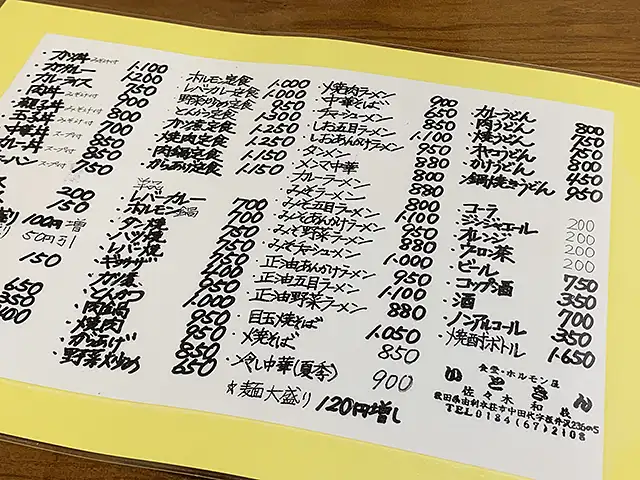 ・カツ丼 みそ汁付 1.100
カツカレー 1.200
カレーライス 750
肉丼 みそ汁付 900
親子丼 みそ汁付 800
玉子丼 みそ汁付 700
中華丼 スープ付 850
カレー丼 スープ付 850
ーハン スープ付 750
200
150
100円増
50円引
150
650
350
400
・ホルモン定食 1.000
・レバカレー定食 1.000
・野菜炒め定食 950
・とんかつ定食 1.300
・かつ煮定食 1.250
・焼肉定食 1.250
・肉鍋定食 1.150
・からあげ定食 1.150
・レバーカレー 700
・ホルモン鍋 700
・タン焼 750
・ハツ焼 750
・レバ焼 750
・ギョウザ 400
・かつ煮 950
・とんかつ 1.000
・肉鍋 950
・焼肉 950
・からあげ 850
・野菜炒め 650
・焼肉ラーメン 900
・中華そば 650
・チャーシューメン 850
・しお五目ラーメン 1.100
・しおあんかけラーメン 950
・タンメン 880
・メンマ中華 800
・カレーラーメン 880
・みそラーメン 800
・みそ五目ラーメン 1.100
・みそあんかけラーメン 950
・みそ野菜ラーメン 880
・みそチャーシューメン 1.000
・正油あんかけラーメン 950
・正油五目ラーメン 1.100
・正油野菜ラーメン 880
・目玉焼そば 1.050
・焼そば 850
・冷し中華(夏季) 900
☆麺大盛り 120円増し
・カレーうどん 800
・肉うどん 750
・焼うどん 750
・ホルモンうどん 800
・かけうどん 450
・鍋焼きうどん 950
・コーラ 200
・ジンジャエール 200
・オレンジ 200
・ウーロン茶 200
・ビール 750
・コップ酒 350
・酒 700
・ノンアルコール 350
・焼酎ボトル 1.650
食堂・ホルモン屋
いとさん
佐々木和枝
秋田県由利本荘市中田代字板井沢236の5
TEL0184(67)2108